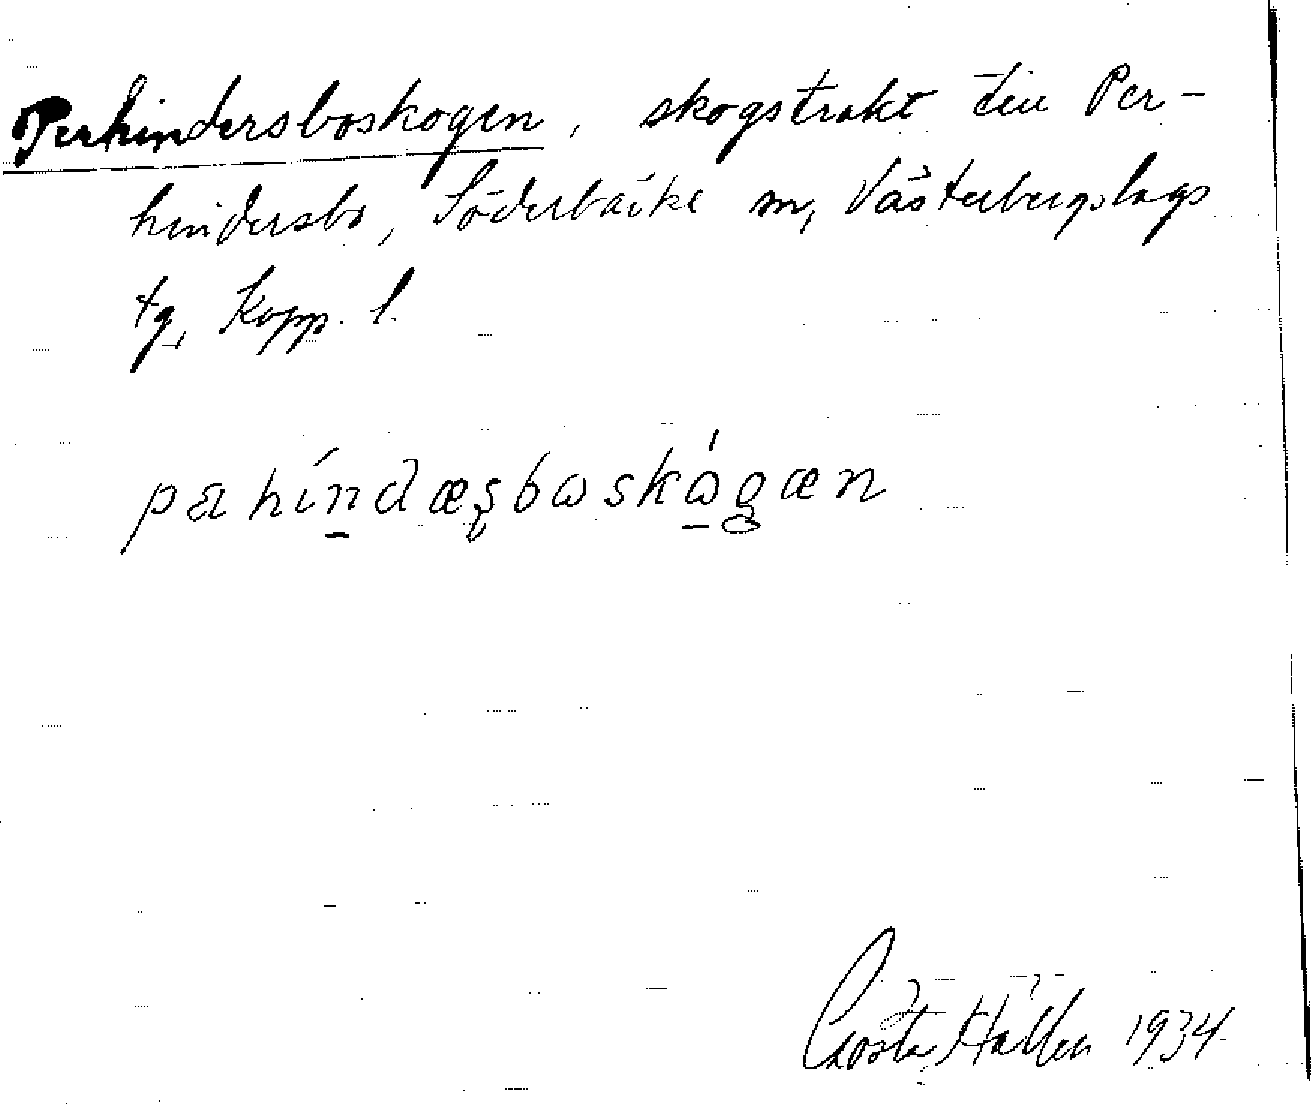 Perhindersboskogen, skogstrakt till Per-
hindersbo, Söderbärke sn, Västerbergslags
tg, Kopp. l.
pærhíndæʂbωskώgæn
Gösta Hallén 1934